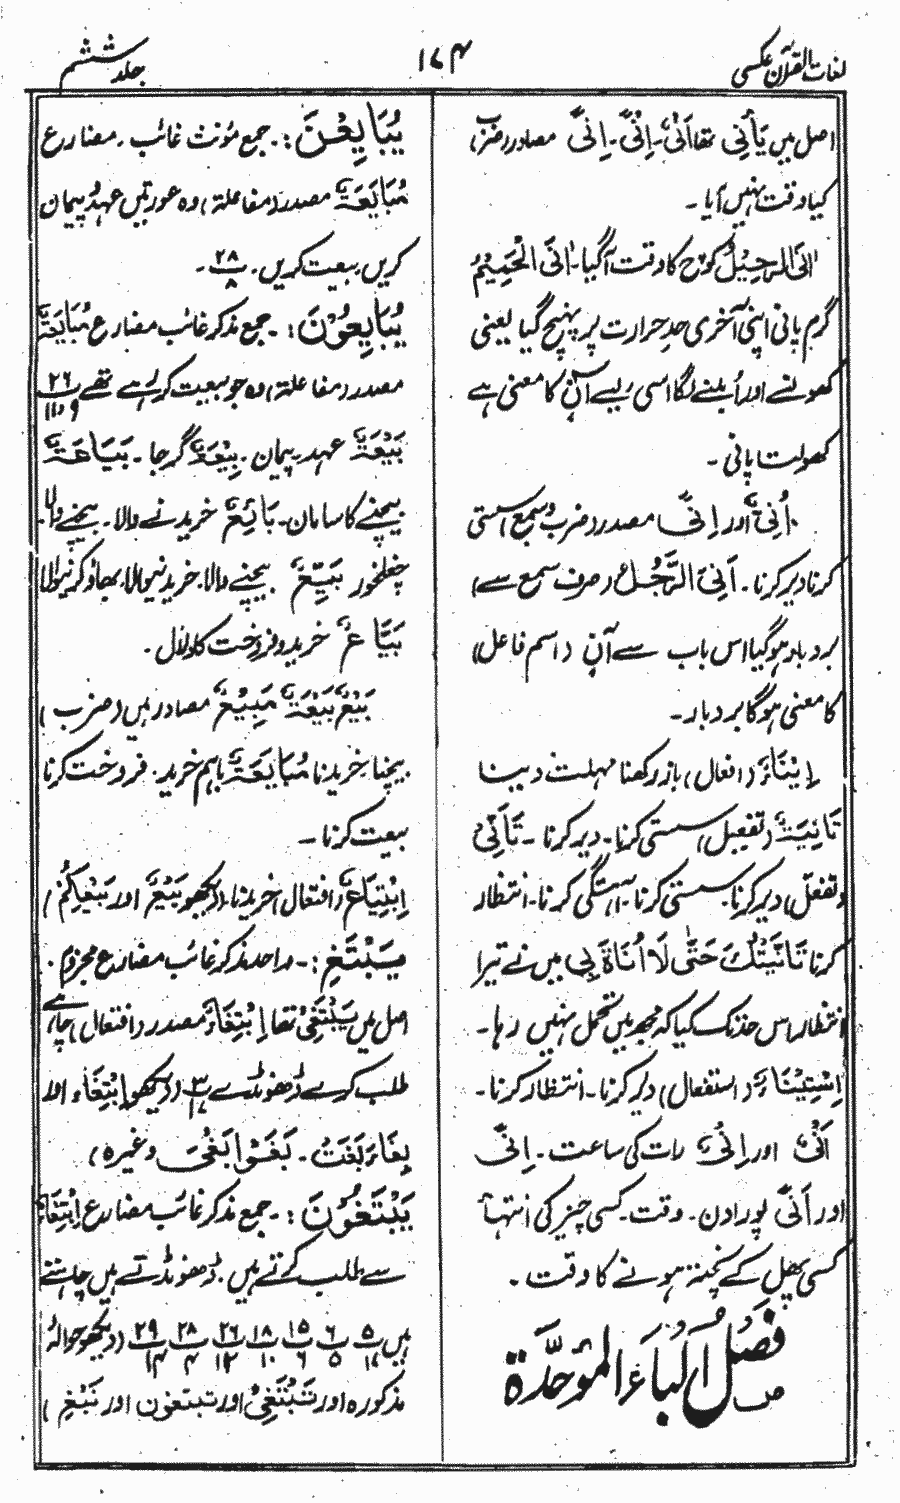 لغات القرآن عکسی
۱۷۴
جلد ششم
اصل میں یَأْنِی تھا اَنْیٌ۔ اِنْیٌ۔ اِنًی مصادر (ضرب)
کیا وقت نہیں آیا۔
اَنَی الرَّحِیْلُ کوچ کا وقت آگیا۔ اَنَی الْحَمِیْمُ
گرم پانی اپنی آخری حدِ حرارت پر پہنچ گیا یعنی
کھولنے اور اُبلنے لگا اسی لیے آنٍ کا معنی ہے
کھولتا پانی۔
اُنِیٌّ اور اِنًی مصدر (ضرب و سمع) سستی
کرنا دیر کرنا۔ اَنِیَ الرَّجُلُ (صرف سمع سے)
بردبار ہوگیا اس باب سے آنٍ (اسم فاعل)
کا معنی ہوگا بردبار۔
اِیْنَاءٌ (افعال) باز رکھنا مہلت دینا
تَأْنِیَۃٌ (تفعیل) سستی کرنا۔ دیر کرنا۔ تَأَنِّیْ
(تفعل) دیر کرنا۔ سستی کرنا۔ آہستگی کرنا۔ انتظار
کرنا تَأَنَّیْتُکَ حَتّٰی لَا اَنَاۃَ بِی میں نے تیرا
انتظار اس حد تک کیا کہ مجھ میں تحمل نہیں رہا۔
اِسْتِیْنَاءٌ (استفعال) دیر کرنا۔ انتظار کرنا۔
اَنْیٌ اور اِنْیٌ رات کی ساعت۔ اِنًی
اور اَنًی پورا دن۔ وقت۔ کسی چیز کی انتہا
کسی پھل کے پختہ ہونے کا وقت۔
فصل الباء الموحدۃ
یُبَایِعْنَ:۔ جمع مؤنث غائب۔ مضارع
مُبَایَعَۃٌ مصدر (مفاعلۃ) وہ عورتیں عہد پیمان
کریں بیعت کریں۔ ۲۸/۸۔
یُبَایِعُوْنَ:۔ جمع مذکر غائب مضارع مُبَایَعَۃٌ
مصدر (مفاعلۃ) وہ جو بیعت کر رہے تھے ۲۶/۹ و۱۱
بَیْعَۃٌ عہد۔ پیمان۔ بِیْعَۃٌ گرجا۔ بَیَاعَۃٌ
بیچنے کا سامان۔ بَائِعٌ خریدنے والا۔ بیچنے والا۔
چغلخور بَیِّعٌ بیچنے والا۔ خریدنیوالا۔ بھاؤ کرنیوالا
بَیَّاعٌ خرید و فروخت کا دلال۔
بَیْعٌ بَیْعَۃٌ مَبِیْعٌ مصادر ہیں (ضرب)
بیچنا خریدنا مُبَایَعَۃٌ باہم خرید۔ فروخت کرنا
بیعت کرنا۔
اِبْتِیَاعٌ (افتعال) خریدنا۔ (دیکھو بَیْعٌ اور بَیْعِکُمْ)
یَبْتَغِ:۔ واحد مذکر غائب مضارع مجزوم۔
اصل میں یَبْتَغِیْ تھا اِبْتِغَاءٌ مصدر (افتعال) چاہے
طلب کرے ڈھونڈے ۳/۱۷ (دیکھو اِبْتِغَاء اور
بِغَاءَ بَغَتْ۔ بَغَوْا بَغْیَ وغیرہ)
یَبْتَغُوْنَ:۔ جمع مذکر غائب مضارع اِبْتِغَاءٌ
سے طلب کرتے ہیں۔ ڈھونڈتے ہیں چاہتے
ہیں ۵/۱۷ ۶/۵ ۱۵/۶ ۱۸/۱۰ ۲۶/۱۲ ۲۸/۴ ۲۹/۱۴ (دیکھو حوالۂ
مذکورہ اور تَبْتَغِیْ اور تبتغون اور نَبْغِ)